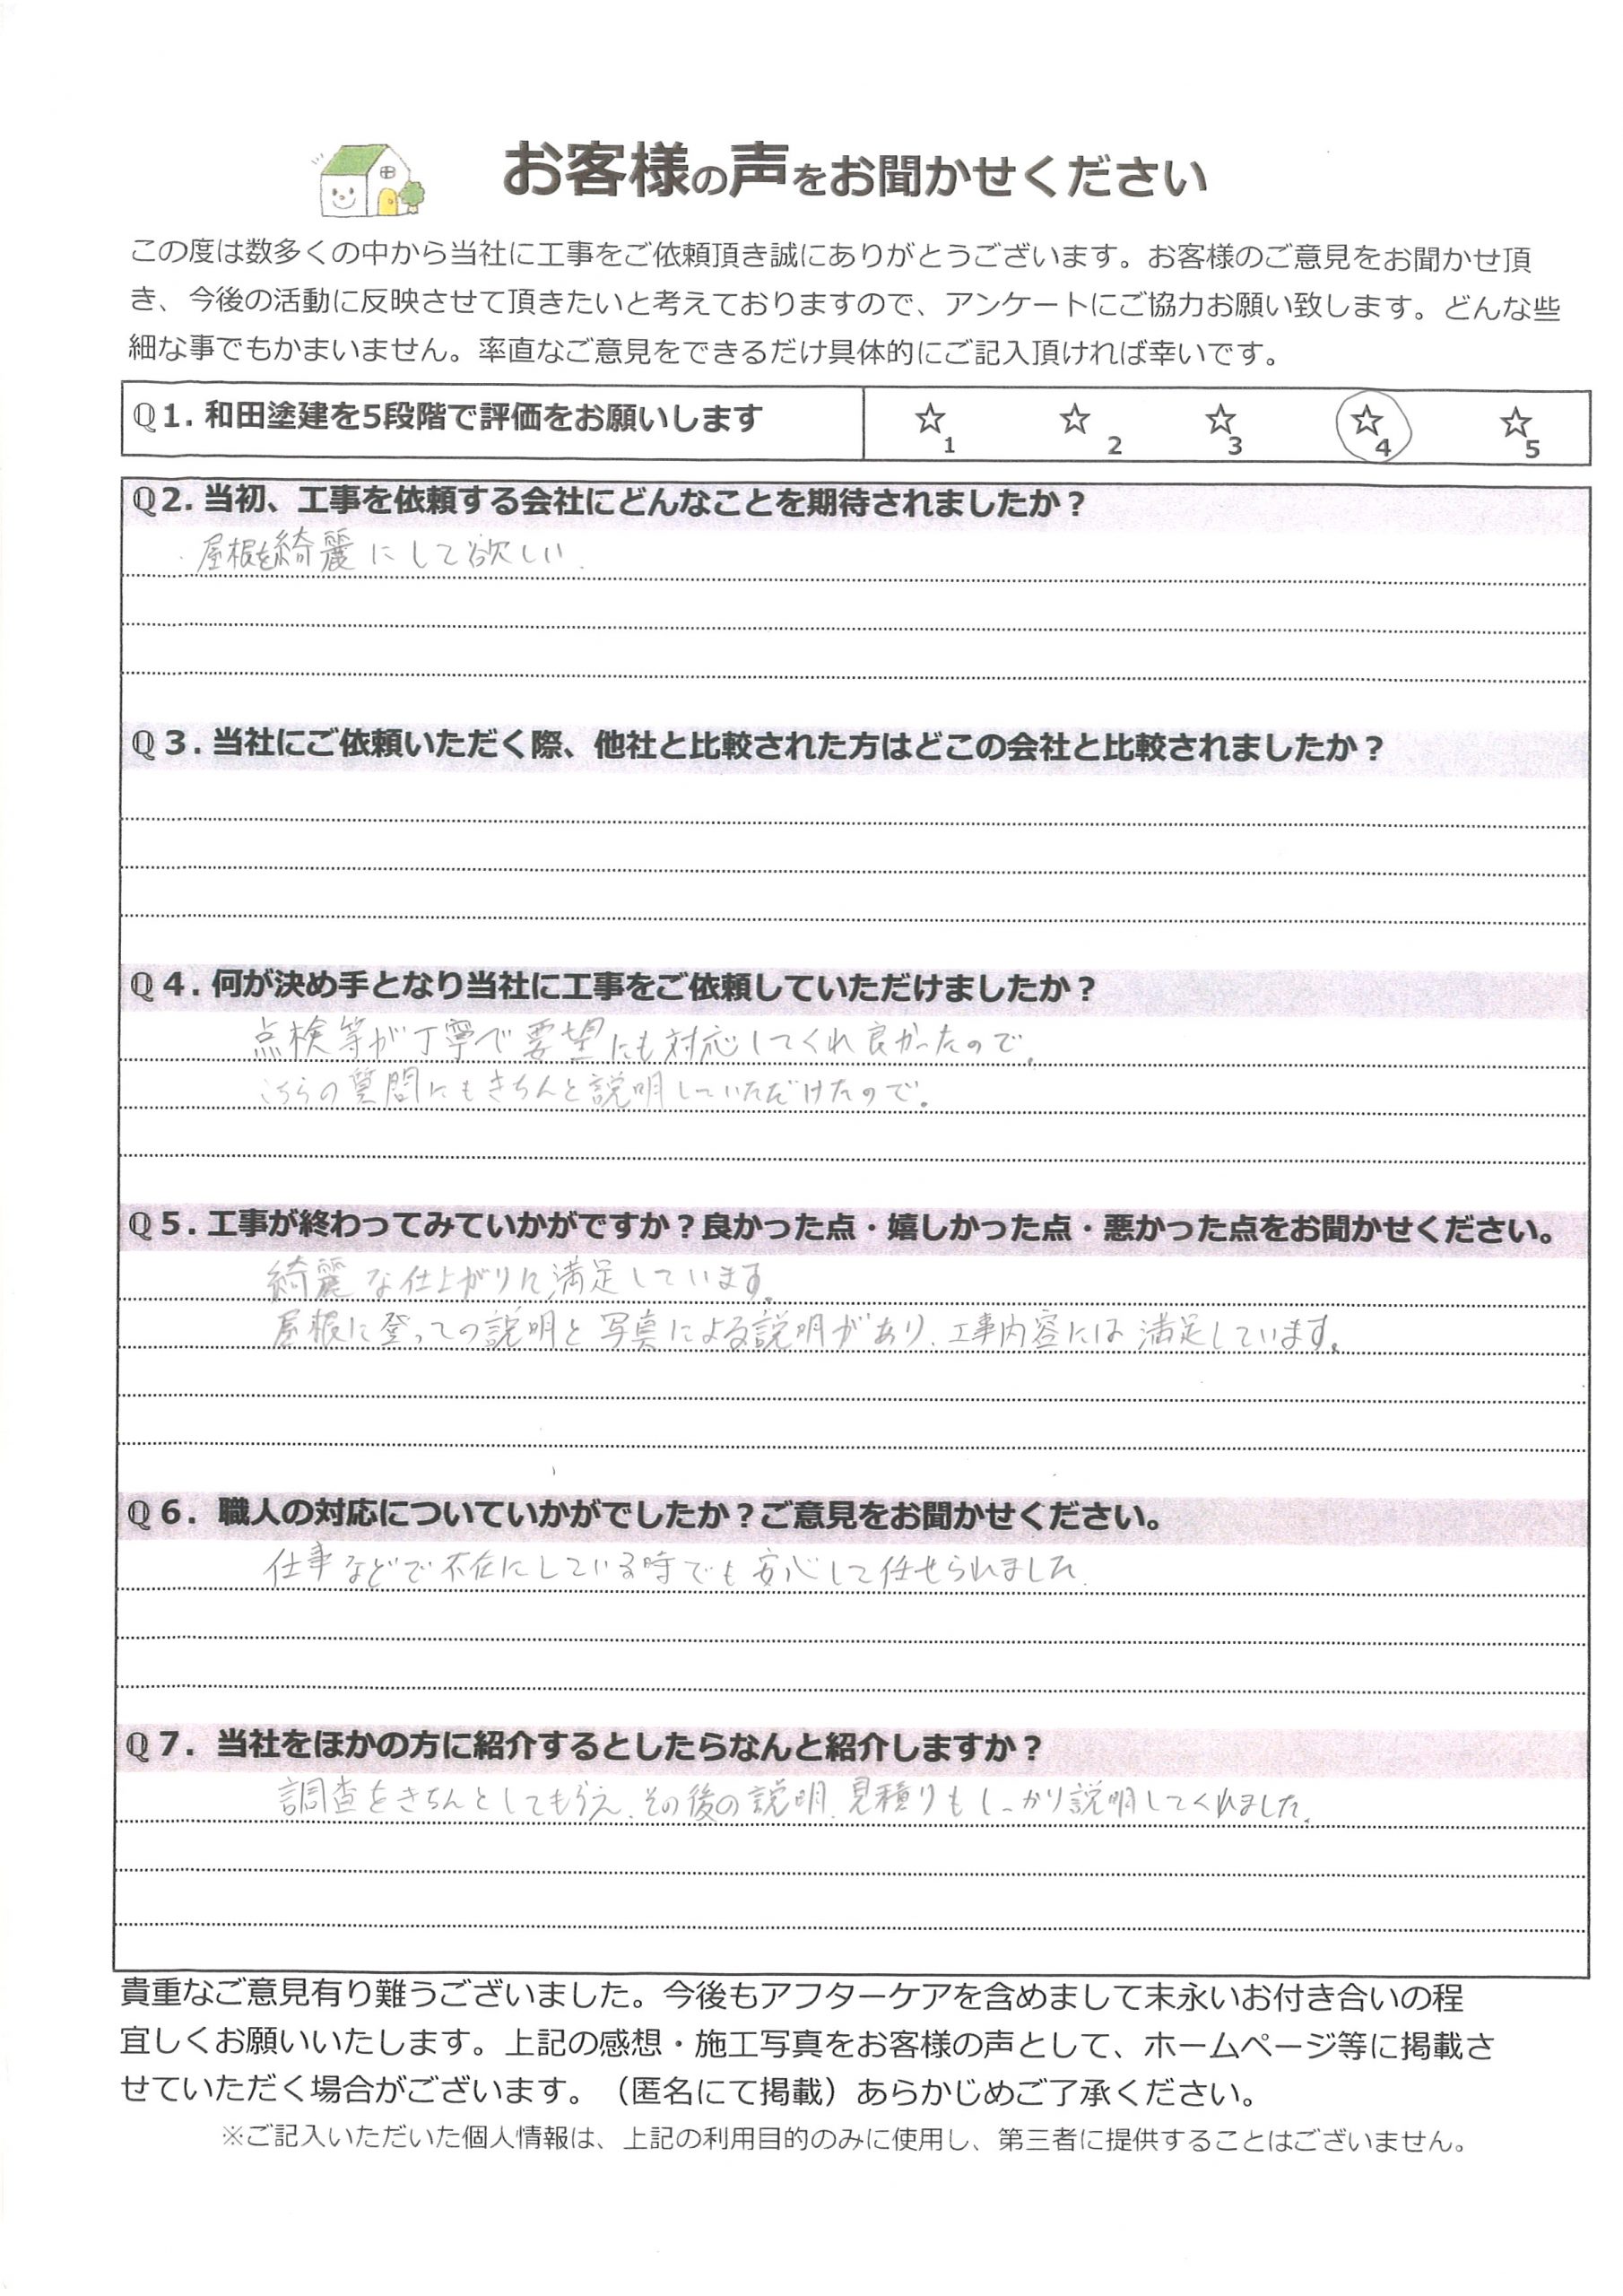 お客様の声をお聞かせください
この度は数多くの中から当社に工事をご依頼頂き誠にありがとうございます。お客様のご意見をお聞かせ頂
き、今後の活動に反映させて頂きたいと考えておりますので、アンケートにご協力お願い致します。どんな些
細な事でもかまいません。率直なご意見をできるだけ具体的にご記入頂ければ幸いです。
Q1. 和田塗建を5段階で評価をお願いします ☆1 ☆2 ☆3 ☆4 ☆5
Q2. 当初、工事を依頼する会社にどんなことを期待されましたか？
・屋根を綺麗にして欲しい.
Q3. 当社にご依頼いただく際、他社と比較された方はどこの会社と比較されましたか？
Q4. 何が決め手となり当社に工事をご依頼していただけましたか？
点検等が丁寧で要望にも対応してくれ良かったので。
こちらの質問にもきちんと説明していただけたので。
Q5. 工事が終わってみていかがですか？良かった点・嬉しかった点・悪かった点をお聞かせください。
綺麗な仕上がりに満足しています。
屋根に登っての説明と写真による説明があり、工事内容には満足しています。
Q6. 職人の対応についていかがでしたか？ご意見をお聞かせください。
仕事などで不在にしている時でも安心して任せられました.
Q7. 当社をほかの方に紹介するとしたらなんと紹介しますか？
調査をきちんとしてもらえ、その後の説明、見積りもしっかり説明してくれました.
貴重なご意見有り難うございました。今後もアフターケアを含めまして末永いお付き合いの程
宜しくお願いいたします。上記の感想・施工写真をお客様の声として、ホームページ等に掲載さ
せていただく場合がございます。（匿名にて掲載）あらかじめご了承ください。
※ご記入いただいた個人情報は、上記の利用目的のみに使用し、第三者に提供することはございません。